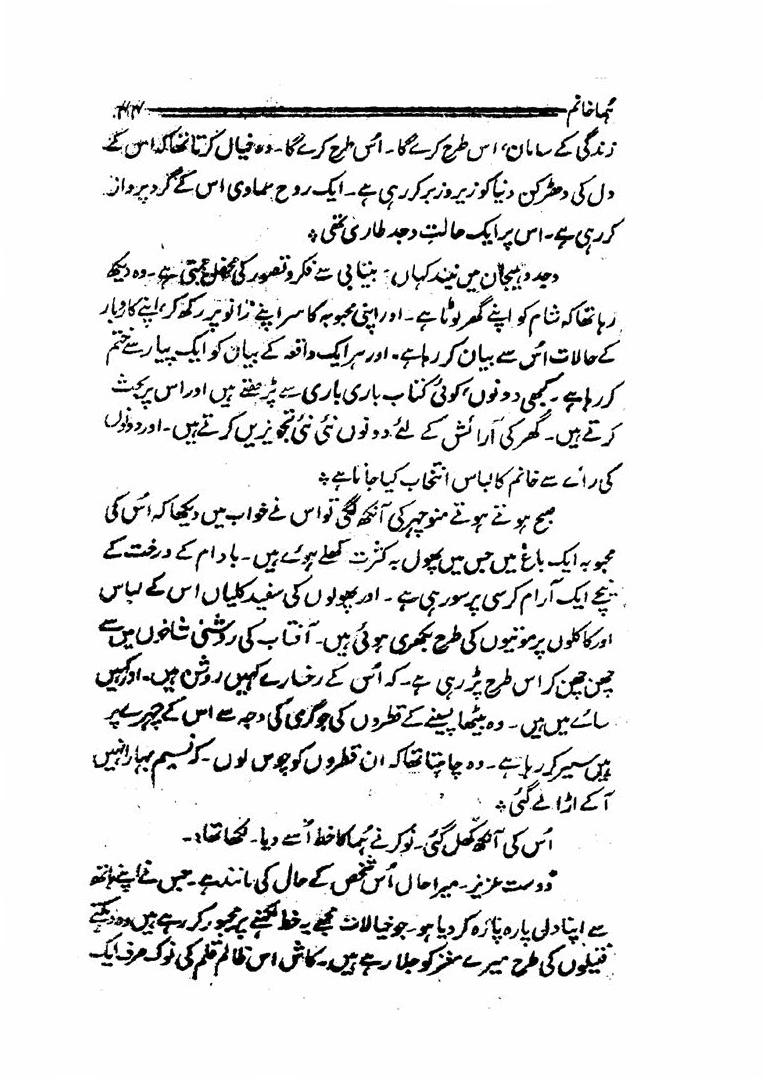 ہما خانم
زندگی کے سامان، اس طرح کرے گا۔ اُس طرح کرے گا۔ وہ خیال کرتا تھا کہ اس کے
دل کی دھڑکن دنیا کو زیر و زبر کر رہی ہے۔ ایک روح سماوی اس کے گرد پرواز
کر رہی ہے۔ اس پر ایک حالتِ وجد طاری تھی ؞
وجد و ہیجان میں نیند کہاں۔ بیتابی سے فکر و تصور کی محفل جمتی ہے۔ وہ دیکھ
رہا تھا کہ شام کو اپنے گھر لوٹا ہے۔ اور اپنی محبوبہ کا سر اپنے زانو پر رکھ کر، اپنے کاروبار
کے حالات اُس سے بیان کر رہا ہے۔ اور ہر ایک واقعہ کے بیان کو ایک پیار سے ختم
کر رہا ہے۔ کبھی دونوں، کوئی کتاب باری باری سے پڑھتے ہیں اور اس پر بحث
کرتے ہیں۔ گھر کی آرائش کے لئے دونوں نئی نئی تجویزیں کرتے ہیں۔ اور دونوں
کی رائے سے خانم کا لباس انتخاب کیا جاتا ہے ؞
صبح ہوتے ہوتے منوچہر کی آنکھ لگی تو اس نے خواب میں دیکھا کہ اُس کی
محبوبہ ایک باغ میں جس میں پھول بہ کثرت کھلے ہوئے ہیں۔ بادام کے درخت کے
نیچے ایک آرام کرسی پر سو رہی ہے۔ اور پھولوں کی سفید کلیاں اس کے لباس
اور کاکلوں پر موتیوں کی طرح بکھری ہوئی ہیں۔ آفتاب کی روشنی شاخوں میں سے
چھن چھن کر اس طرح پڑ رہی ہے۔ کہ اُس کے رخسارے کہیں روشن ہیں۔ اور کہیں
سائے میں ہیں۔ وہ بیٹھا پسینے کے قطروں کی جو گرمی کی وجہ سے اس کے چہرے پر
ہیں سیر کر رہا ہے۔ وہ چاہتا تھا کہ ان قطروں کو چوس لوں۔ کہ نسیم بہار انہیں
آ کے اڑا لے گئی ؞
اُس کی آنکھ کھل گئی۔ نوکر نے ہما کا خط اُسے دیا۔ لکھا تھا:۔
دوست عزیز۔ میرا حال اُس شخص کے حال کی مانند ہے۔ جس نے اپنے ہاتھ
سے اپنا دل پارہ پارہ کر دیا ہو۔ جو خیالات مجھے یہ خط لکھنے پر مجبور کر رہے ہیں وہ دہکتے
فتیلوں کی طرح میرے مغز کو جلا رہے ہیں۔ کاش اس ظالم قلم کی نوک صرف ایک